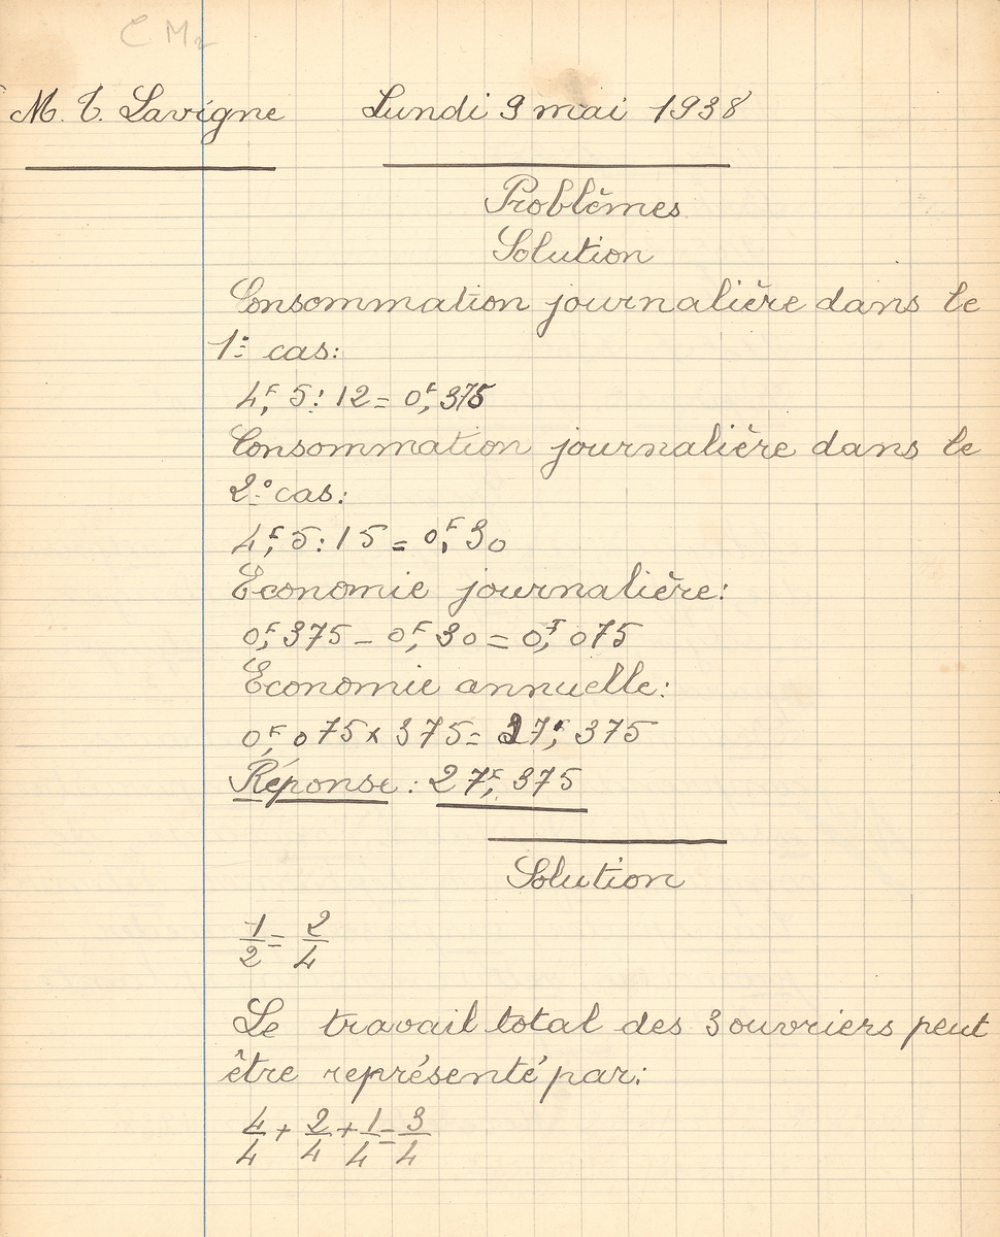 C M2
M. T. Lavigne Lundi 9 mai 1938
Problèmes
Solution
Consommation journalière dans le
1e cas:
4F,5 : 12 = 0F,375
Consommation journalière dans le
2e cas:
4F,5 : 15 = 0F,30
Economie journalière:
0F,375 - 0F,30 = 0F,075
Economie annuelle:
0F,075 x 375 = 27F,375
Réponse : 27F,375
Solution
1/2 = 2/4
Le travail total des 3 ouvriers peut
être représenté par:
4/4 + 2/4 + 1/4 = 3/4